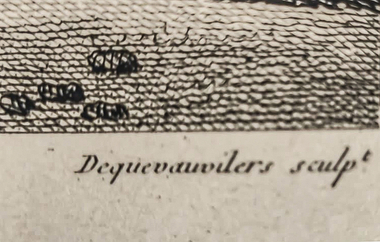 Dequevauvilers sculpᵗ